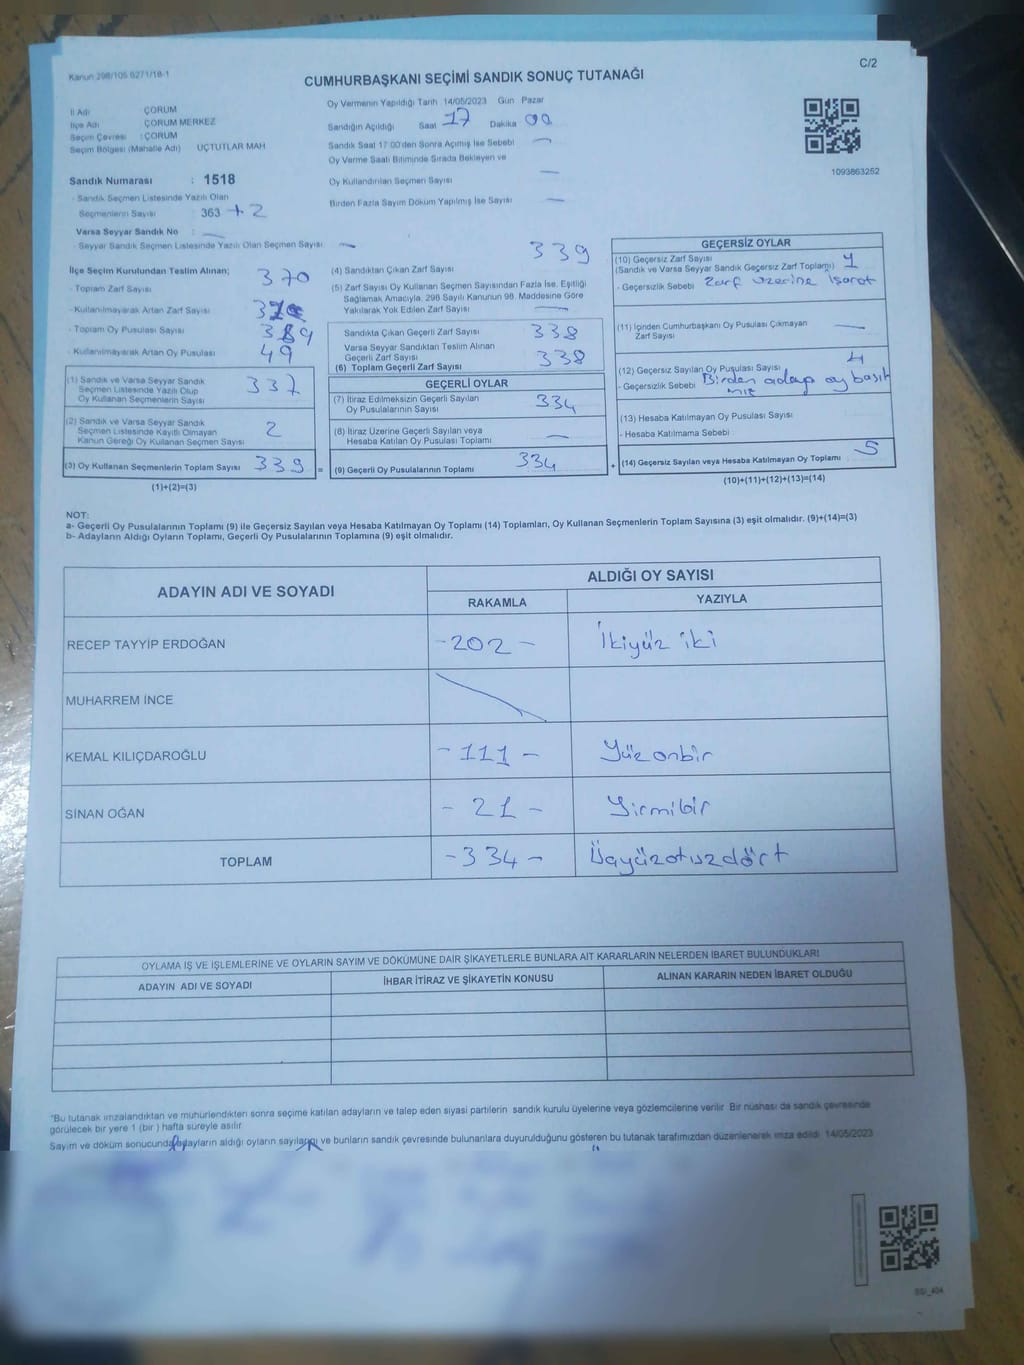 Kanun 298/105 6271/18-1
C/2
CUMHURBAŞKANI SEÇİMİ SANDIK SONUÇ TUTANAĞI
İl Adı : ÇORUM
İlçe Adı : ÇORUM MERKEZ
Seçim Çevresi : ÇORUM
Seçim Bölgesi (Mahalle Adı) UÇTUTLAR MAH
Oy Vermenin Yapıldığı Tarih 14/05/2023 Gün Pazar
Sandığın Açıldığı Saat 17 Dakika 00
Sandık Saat 17:00'den Sonra Açımış İse Sebebi —
Oy Verme Saati Bitiminde Sırada Bekleyen ve
Oy Kullandırılan Seçmen Sayısı —
Birden Fazla Sayım Döküm Yapılmış İse Sayısı —
1093863252
Sandık Numarası : 1518
- Sandık Seçmen Listesinde Yazılı Olan
Seçmenlerin Sayısı 363 + 2
Varsa Seyyar Sandık No : —
- Seyyar Sandık Seçmen Listesinde Yazılı Olan Seçmen Sayısı: —
İlçe Seçim Kurulundan Teslim Alınan;
- Toplam Zarf Sayısı 370
- Kullanılmayarak Artan Zarf Sayısı
- Toplam Oy Pusulası Sayısı
- Kullanılmayarak Artan Oy Pusulası 49
(1) Sandık ve Varsa Seyyar Sandık
Seçmen Listesinde Yazılı Olup
Oy Kullanan Seçmenlerin Sayısı 337
(2) Sandık ve Varsa Seyyar Sandık
Seçmen Listesinde Kayıtlı Olmayan
Kanun Gereği Oy Kullanan Seçmen Sayısı 2
(3) Oy Kullanan Seçmenlerin Toplam Sayısı 339 =
(1)+(2)=(3)
(4) Sandıktan Çıkan Zarf Sayısı 339
(5) Zarf Sayısı Oy Kullanan Seçmen Sayısından Fazla İse, Eşitliği
Sağlamak Amacıyla, 298 Sayılı Kanunun 98. Maddesine Göre
Yakılarak Yok Edilen Zarf Sayısı —
Sandıkta Çıkan Geçerli Zarf Sayısı 338
Varsa Seyyar Sandıktan Teslim Alınan
Geçerli Zarf Sayısı
(6) Toplam Geçerli Zarf Sayısı 338
GEÇERLİ OYLAR
(7) İtiraz Edilmeksizin Geçerli Sayılan
Oy Pusulalarının Sayısı 334
(8) İtiraz Üzerine Geçerli Sayılan veya
Hesaba Katılan Oy Pusulası Toplamı —
(9) Geçerli Oy Pusulalarının Toplamı 334 +
GEÇERSİZ OYLAR
(10) Geçersiz Zarf Sayısı
(Sandık ve Varsa Seyyar Sandık Geçersiz Zarf Toplamı) 1
- Geçersizlik Sebebi Zarf üzerine işaret
(11) İçinden Cumhurbaşkanı Oy Pusulası Çıkmayan
Zarf Sayısı —
(12) Geçersiz Sayılan Oy Pusulası Sayısı 4
- Geçersizlik Sebebi Birden adap oy basılı
mış
(13) Hesaba Katılmayan Oy Pusulası Sayısı
- Hesaba Katılmama Sebebi
(14) Geçersiz Sayılan veya Hesaba Katılmayan Oy Toplamı 5
(10)+(11)+(12)+(13)=(14)
NOT:
a- Geçerli Oy Pusulalarının Toplamı (9) ile Geçersiz Sayılan veya Hesaba Katılmayan Oy Toplamı (14) Toplamları, Oy Kullanan Seçmenlerin Toplam Sayısına (3) eşit olmalıdır. (9)+(14)=(3)
b- Adayların Aldığı Oyların Toplamı, Geçerli Oy Pusulalarının Toplamına (9) eşit olmalıdır.
ADAYIN ADI VE SOYADI ALDIĞI OY SAYISI
RAKAMLA YAZIYLA
RECEP TAYYİP ERDOĞAN -202- İkiyüz iki
MUHARREM İNCE
KEMAL KILIÇDAROĞLU -111- Yüz onbir
SİNAN OĞAN -21- Yirmibir
TOPLAM -334- Üçyüzotuzdört
OYLAMA İŞ VE İŞLEMLERİNE VE OYLARIN SAYIM VE DÖKÜMÜNE DAİR ŞİKAYETLERLE BUNLARA AİT KARARLARIN NELERDEN İBARET BULUNDUKLARI
ADAYIN ADI VE SOYADI İHBAR İTİRAZ VE ŞİKAYETİN KONUSU ALINAN KARARIN NEDEN İBARET OLDUĞU
*Bu tutanak imzalandıktan ve mühürlendikten sonra seçime katılan adayların ve talep eden siyasi partilerin sandık kurulu üyelerine veya gözlemcilerine verilir. Bir nüshası da sandık çevresinde
görülecek bir yere 1 (bir ) hafta süreyle asılır.
Sayım ve döküm sonucunda adayların aldığı oyların sayılarını ve bunların sandık çevresinde bulunanlara duyurulduğunu gösteren bu tutanak tarafımızdan düzenlenerek imza edildi. 14/05/2023